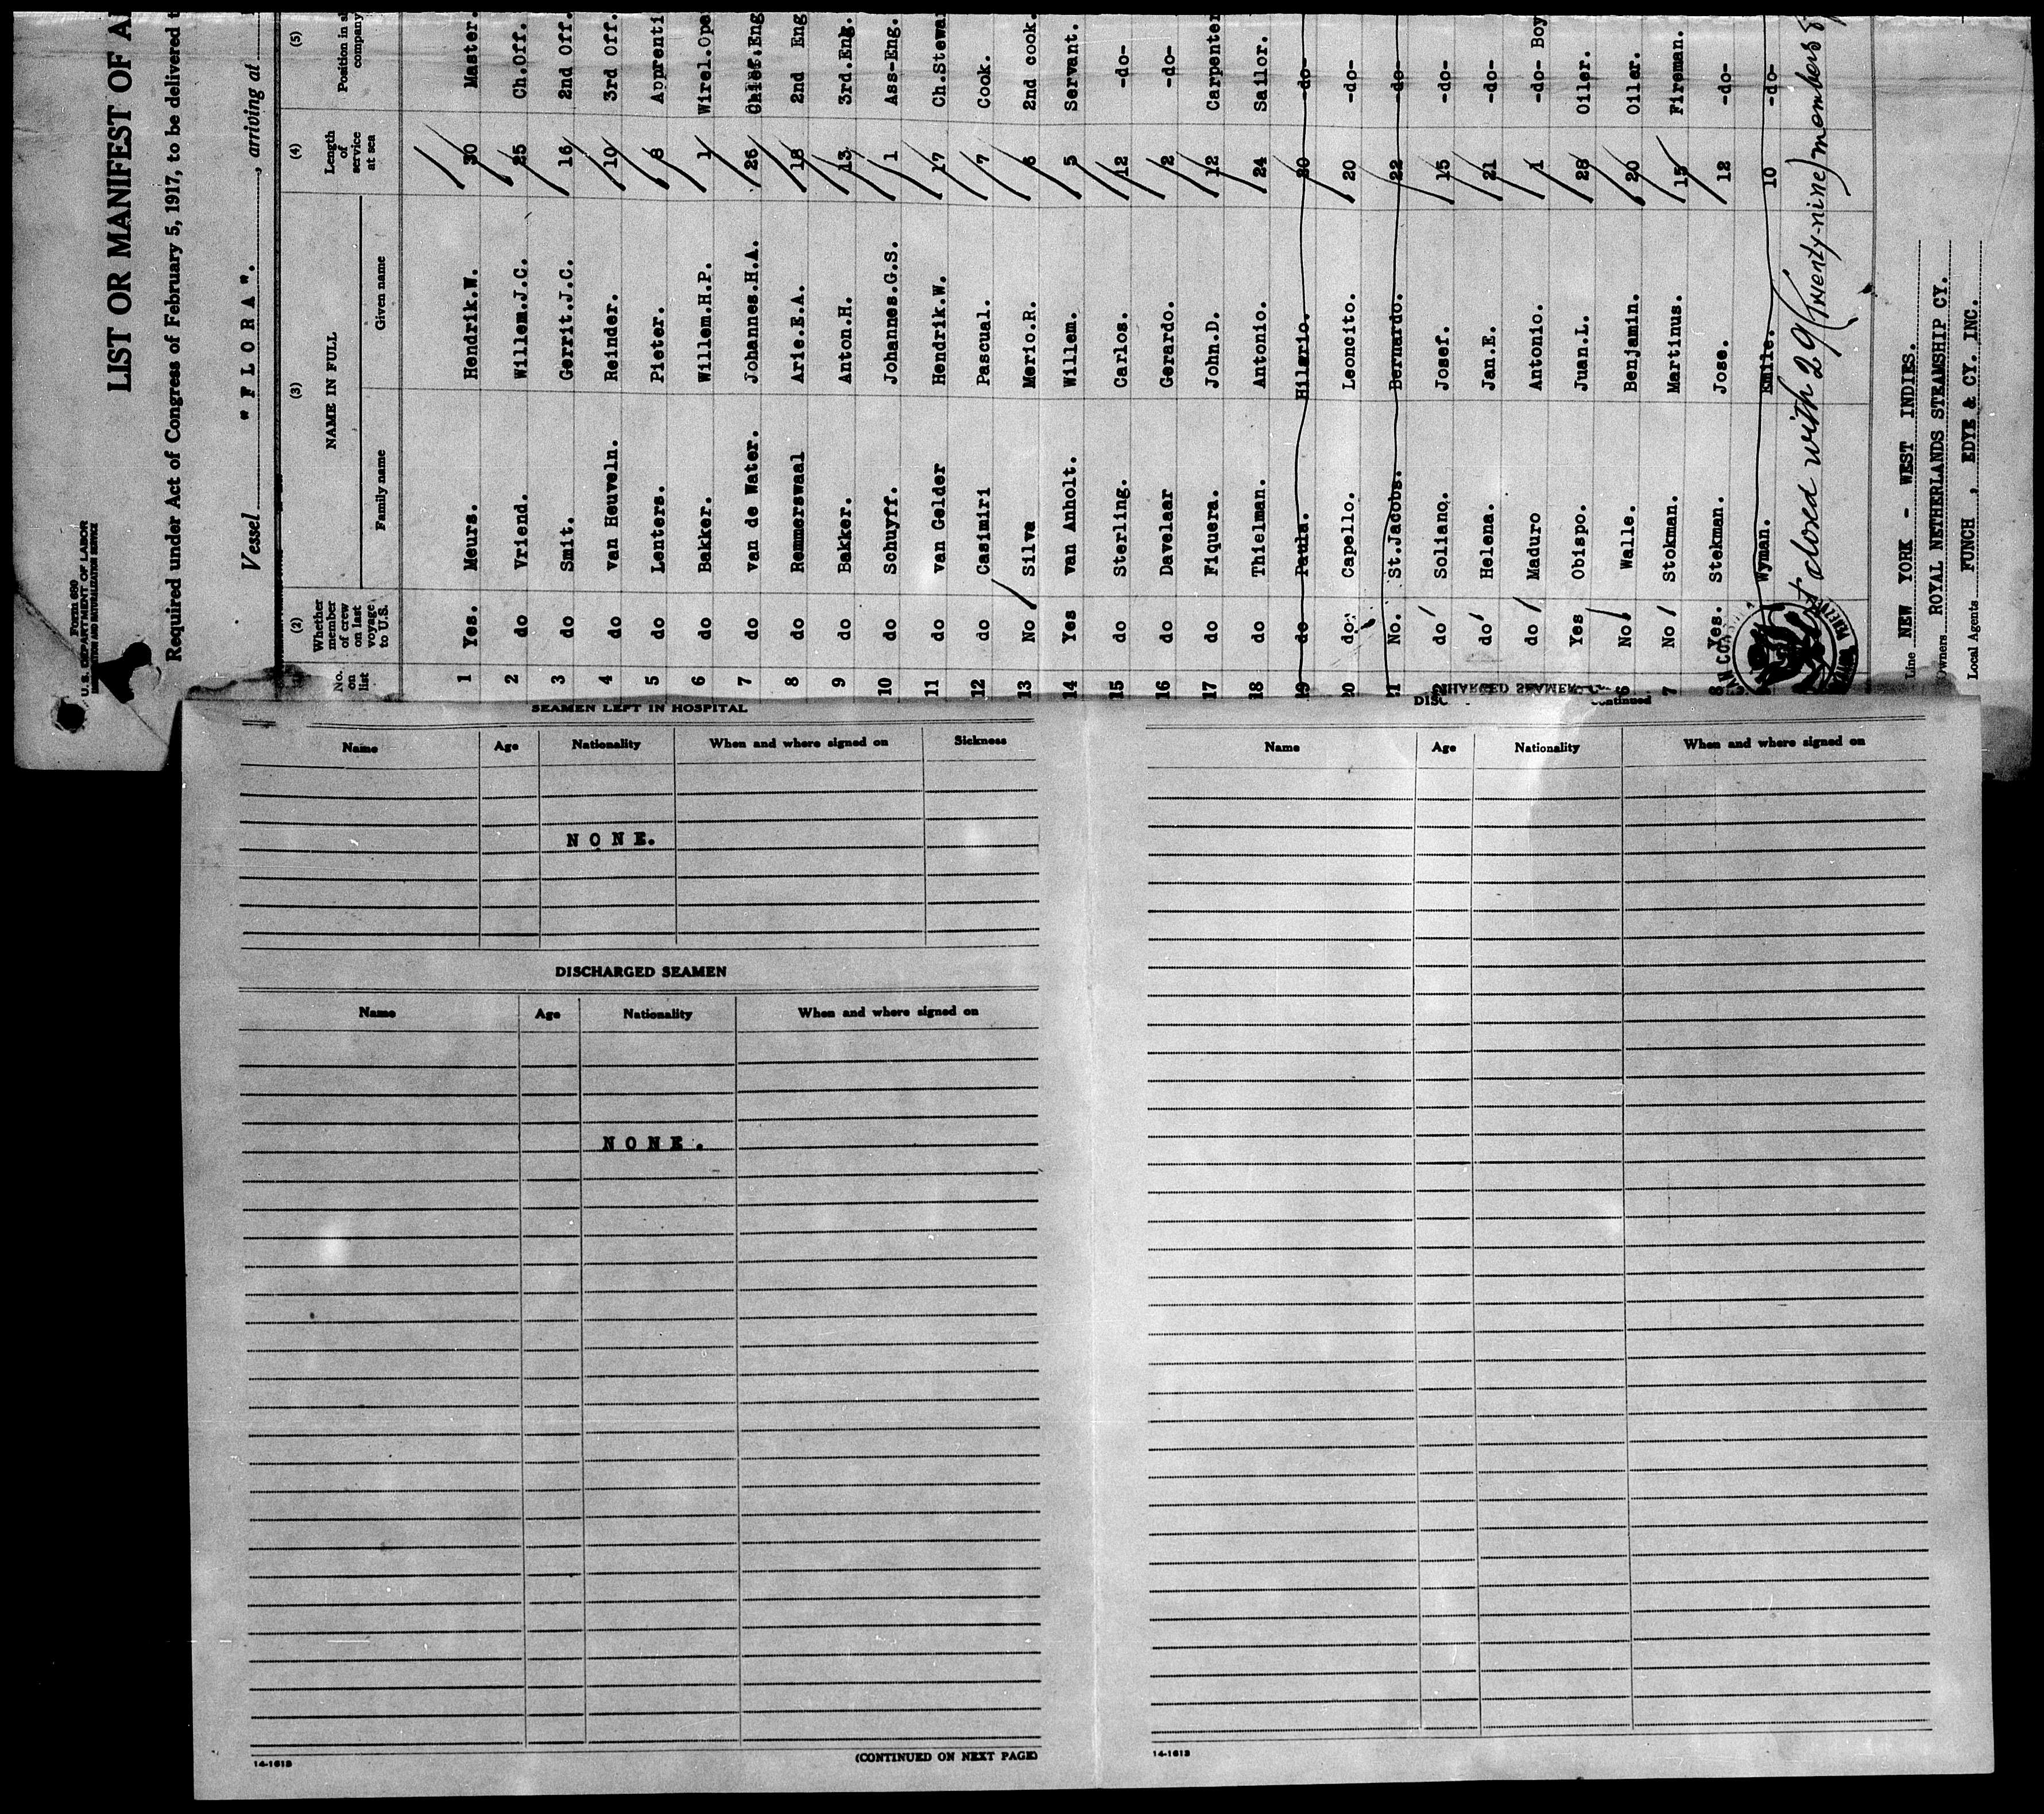 Form 680
U.S. DEPARTMENT OF LABOR
IMMIGRATION AND NATURALIZATION SERVICE
LIST OR MANIFEST OF
Required under Act of Congress of February 5, 1917, to be delivered
Vessel "FLORA". , arriving at
(2) (3) (4) (5)
No. on list Whether member of crew on last voyage to U.S. NAME IN FULL Family name Given name Length of service at sea Position in company
1 Yes. Meurs. Hendrik.W. 30 Master.
2 do Vriend. Willem.J.C. 25 Ch.Off.
3 do Smit. Gerrit.J.C. 16 2nd Off.
4 do van Heuveln. Reinder. 10 3rd Off.
5 do Lenters. Pieter. 8 Apprenti
6 do Bakker. Willem.H.P. 1 Wirel.Ope
7 do van de Water. Johannes.H.A. 26 Chief.Eng
8 do Remmerswaal Arie.E.A. 18 2nd Eng
9 do Bakker. Anton.H. 13 3rd.Eng.
10 do Schuyff. Johannes.G.S. 1 Ass-Eng.
11 do van Gelder Hendrik.W. 17 Ch.Stewa
12 do Casimiri Pascual. 7 Cook.
13 No Silva Merio.R. 6 2nd cook.
14 Yes van Anholt. Willem. 5 Servant.
15 do Sterling. Carlos. 12 -do-
16 do Davelaar Gerardo. 2 -do-
17 do Fiquera. John.D. 12 Carpenter
18 do Thielman. Antonio. 24 Sailor.
19 do Paula. Hilario. 20 -do-
20 do Capello. Leoncito. 20 -do-
21 No. St.Jacobs. Bernardo. 22 -do-
do Soliano. Josef. 15 -do-
do Helena. Jan.E. 21 -do-
do Maduro Antonio. 1 -do- Boy
Yes Obispo. Juan.L. 28 Oiler.
6 No Walle. Benjamin. 20 Oiler.
7 No Stokman. Martinus. 15 Fireman.
8 Yes. Stekman. Jose. 12 -do-
Wyman. Emile. 10 -do-
closed with 29 (twenty-nine) members
Line NEW YORK - WEST INDIES.
Owners ROYAL NETHERLANDS STEAMSHIP CY.
Local Agents FUNCH , EDYE & CY. INC.
SEAMEN LEFT IN HOSPITAL
Name Age Nationality When and where signed on Sickness
NONE.
DISCHARGED SEAMEN
Name Age Nationality When and where signed on
NONE.
14-1613 (CONTINUED ON NEXT PAGE)
DISCHARGED SEAMEN Continued
Name Age Nationality When and where signed on
14-1613